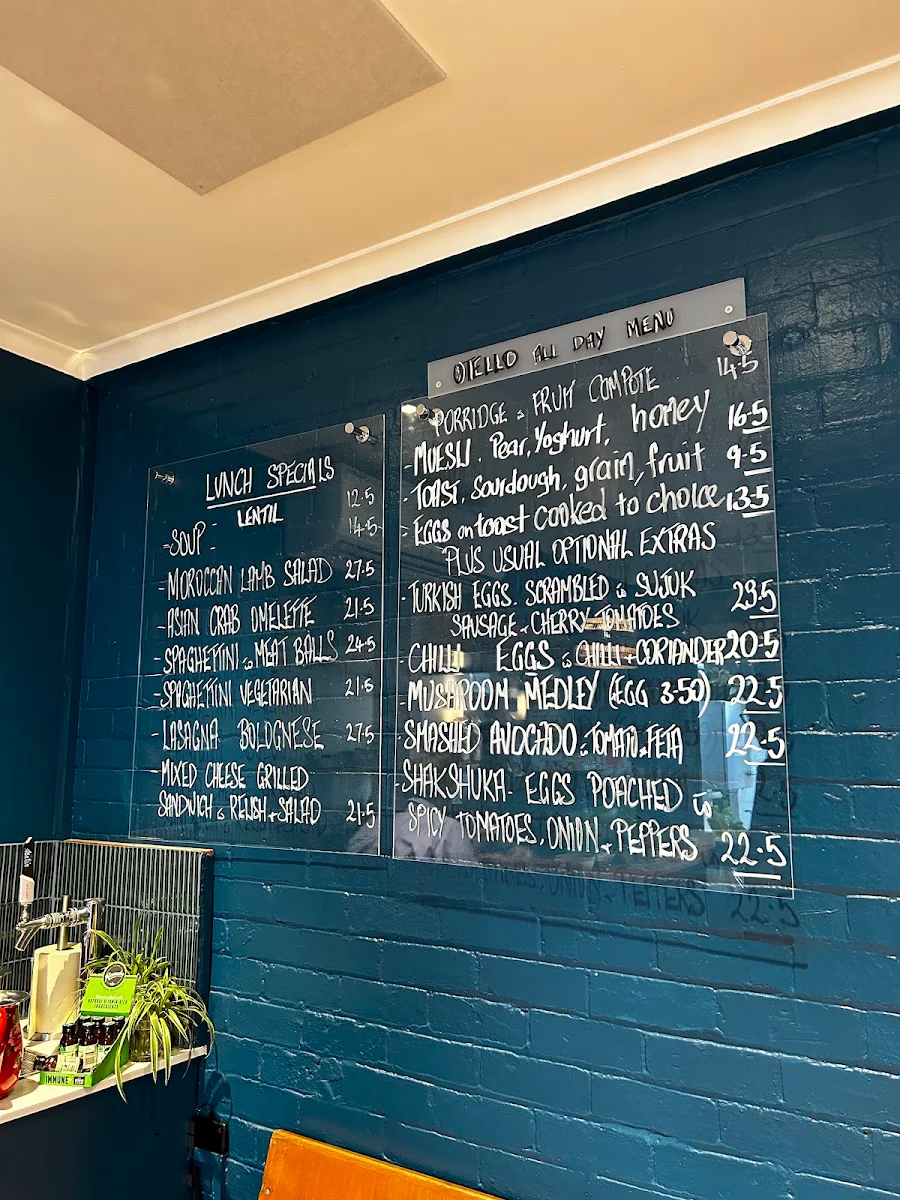 LUNCH SPECIALS
12.5
LENTIL
-SOUP - 14.5
-MOROCCAN LAMB SALAD 27.5
-ASIAN CRAB OMELETTE 21.5
-SPAGHETTINI & MEAT BALLS 24.5
-SPAGHETTINI VEGETARIAN 21.5
-LASAGNA BOLOGNESE 27.5
-MIXED CHEESE GRILLED
SANDWICH & RELISH + SALAD 21.5
OTELLO ALL DAY MENU
PORRIDGE & FRUIT COMPOTE 14.5
-MUESLI. Pear, Yoghurt, honey 16.5
-TOAST, Sourdough, grain, fruit 9.5
-EGGS on toast cooked to choice 13.5
PLUS USUAL OPTIONAL EXTRAS
-TURKISH EGGS. SCRAMBLED & SUJUK
SAUSAGE + CHERRY TOMATOES 23.5
-CHILLI EGGS & CHILLI + CORIANDER 20.5
-MUSHROOM MEDLEY (EGG 3.50) 22.5
-SMASHED AVOCADO & TOMATO + FETA 22.5
-SHAKSHUKA - EGGS POACHED
SPICY TOMATOES, ONION + PEPPERS 22.5
IMMUNE